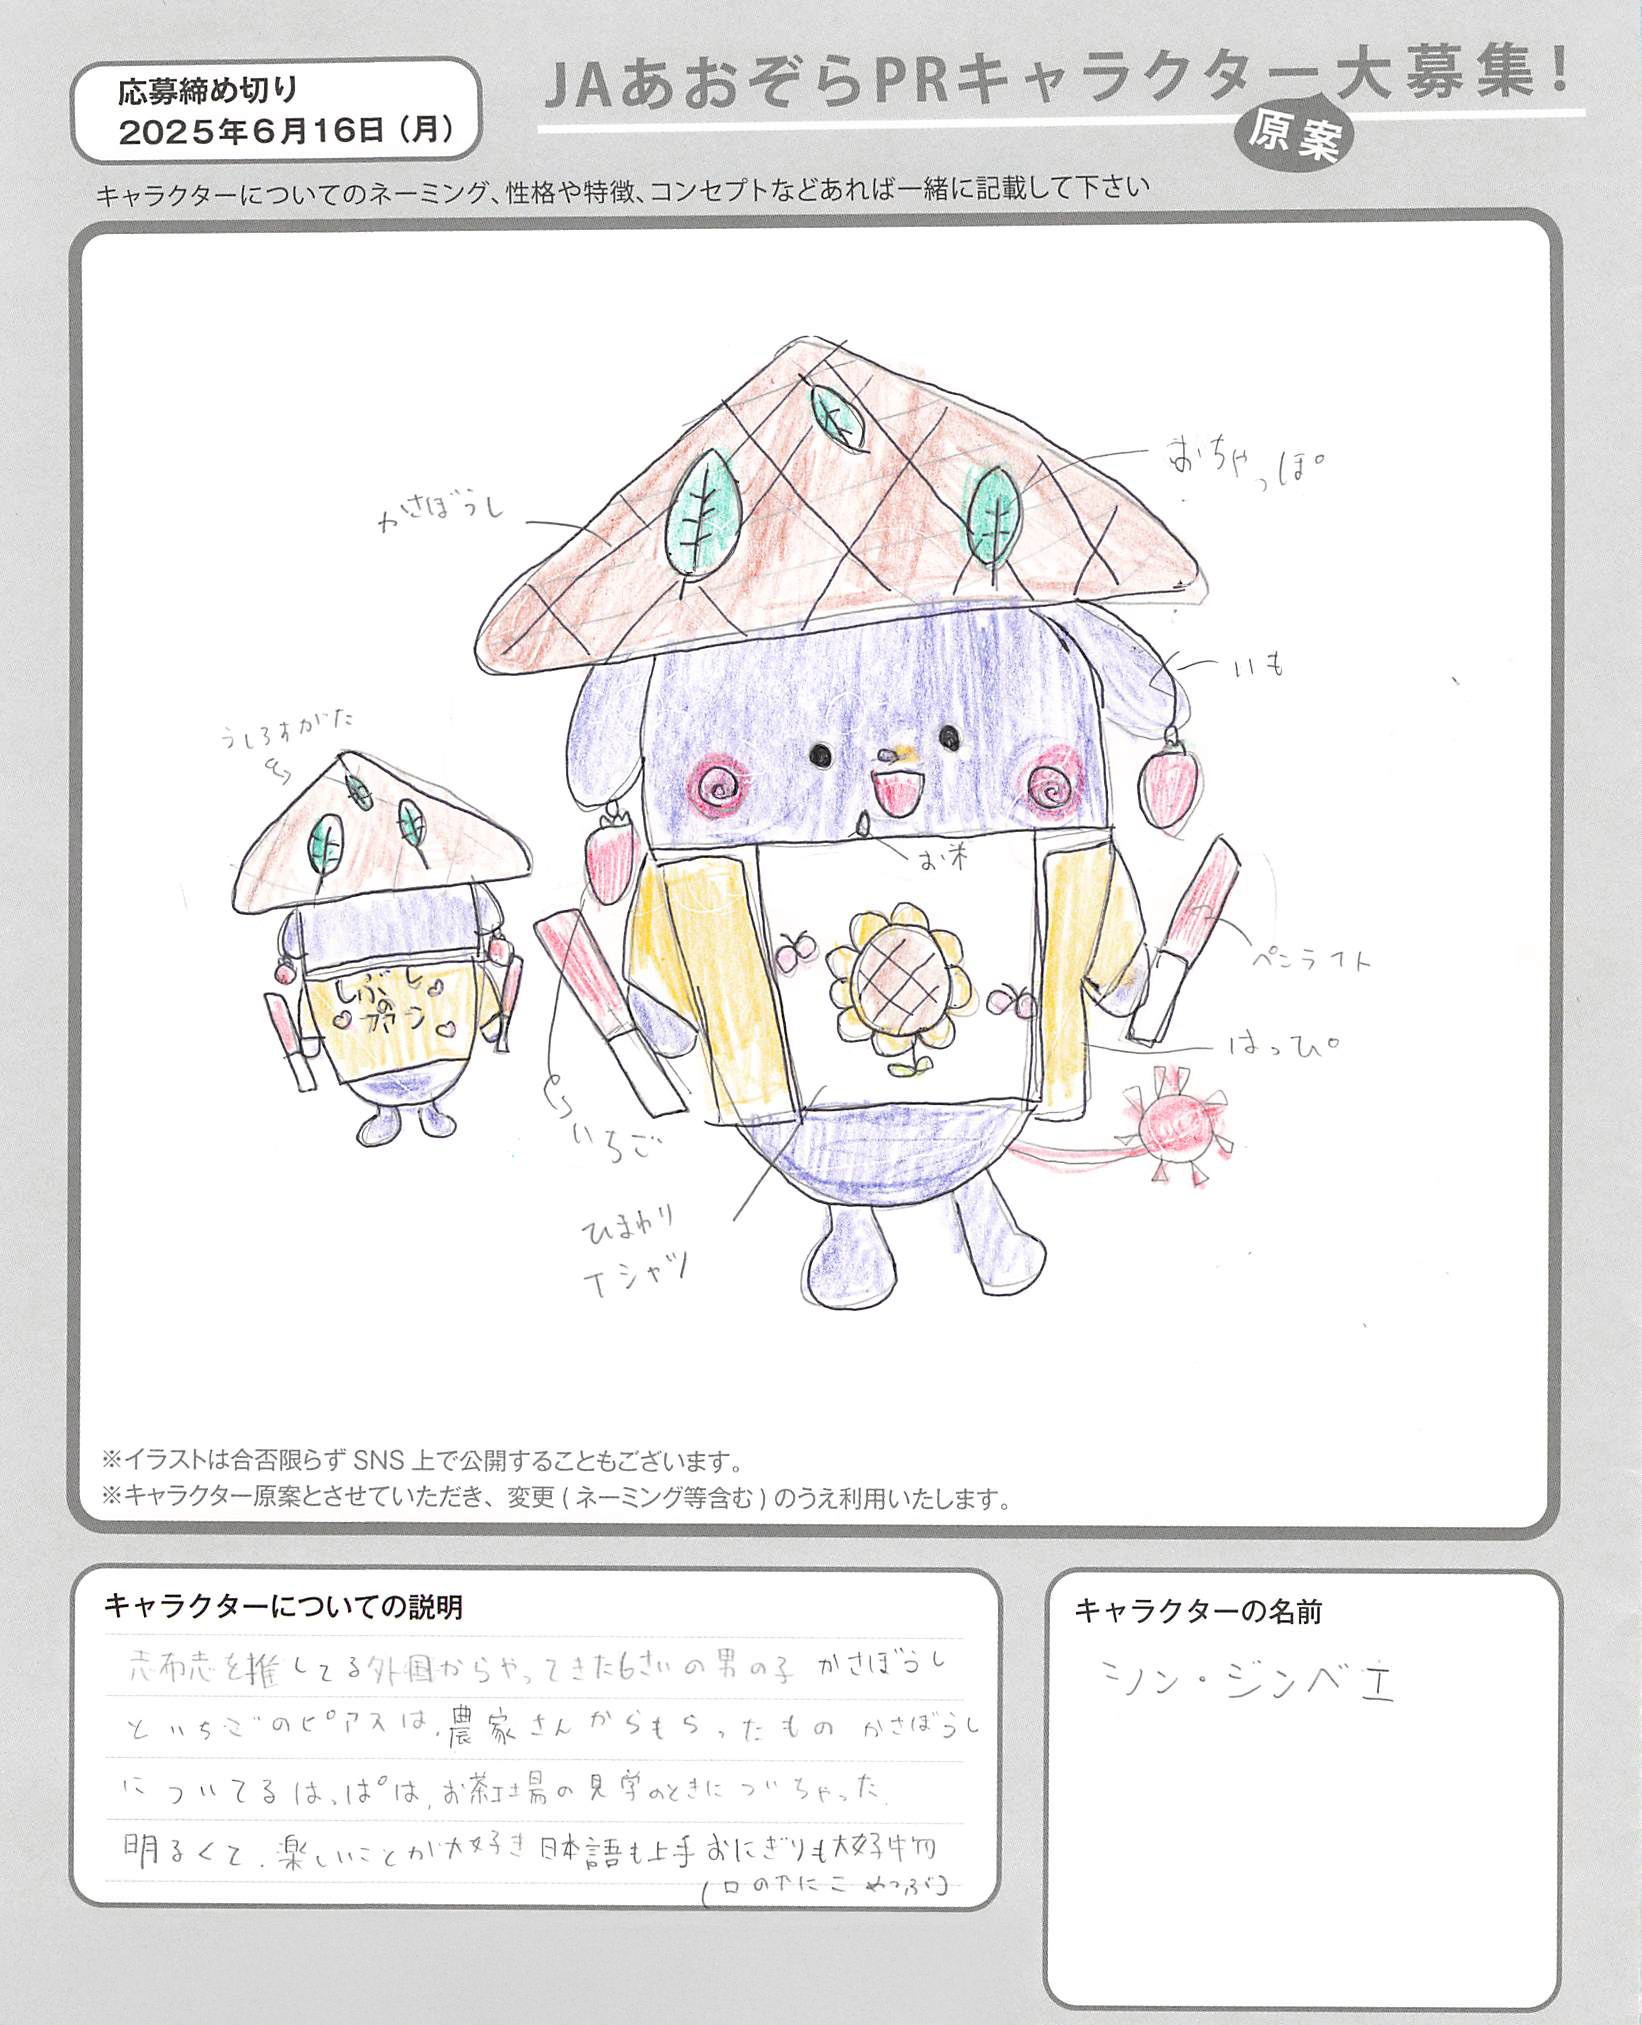 応募締め切り
2025年6月16日（月）
JAあおぞらPRキャラクター大募集！
原案
キャラクターについてのネーミング、性格や特徴、コンセプトなどあれば一緒に記載して下さい
おちゃっぱ
かさぼうし
いも
うしろすがた
お米
ペンライト
はっぴ
いちご
ひまわり
Tシャツ
※イラストは合否限らず SNS 上で公開することもございます。
※キャラクター原案とさせていただき、変更(ネーミング等含む)のうえ利用いたします。
キャラクターについての説明
志布志を推してる外国からやってきた6さいの男の子 かさぼうし
といちごのピアスは、農家さんからもらったもの かさぼうし
についてるはっぱは、お茶工場の見学のときについちゃった
明るくて、楽しいことが大好き 日本語も上手 おにぎりも大好物
キャラクターの名前
シン・ジンベエ